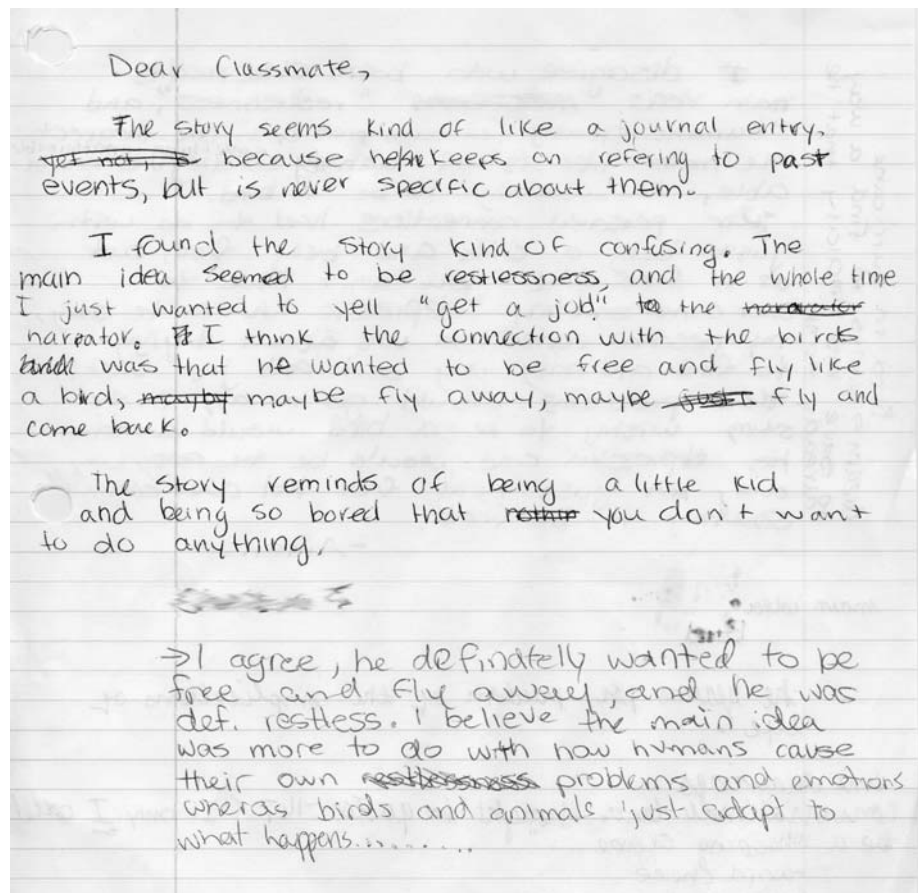 Dear Classmate,
The story seems kind of like a journal entry,
yet not, is because he/she keeps on refering to past
events, but is never specific about them.
I found the story kind of confusing. The
main idea seemed to be restlessness, and the whole time
I just wanted to yell "get a job!" to the
narrator. I think the connection with the birds
was that he wanted to be free and fly like
a bird, mayby maybe fly away, maybe just fly and
come back.
The story reminds of being a little kid
and being so bored that you don't want
to do anything.
→I agree, he definately wanted to be
free and fly away, and he was
def. restless. I believe the main idea
was more to do with how humans cause
their own restlessness problems and emotions
wheras birds and animals just adapt to
what happens.........